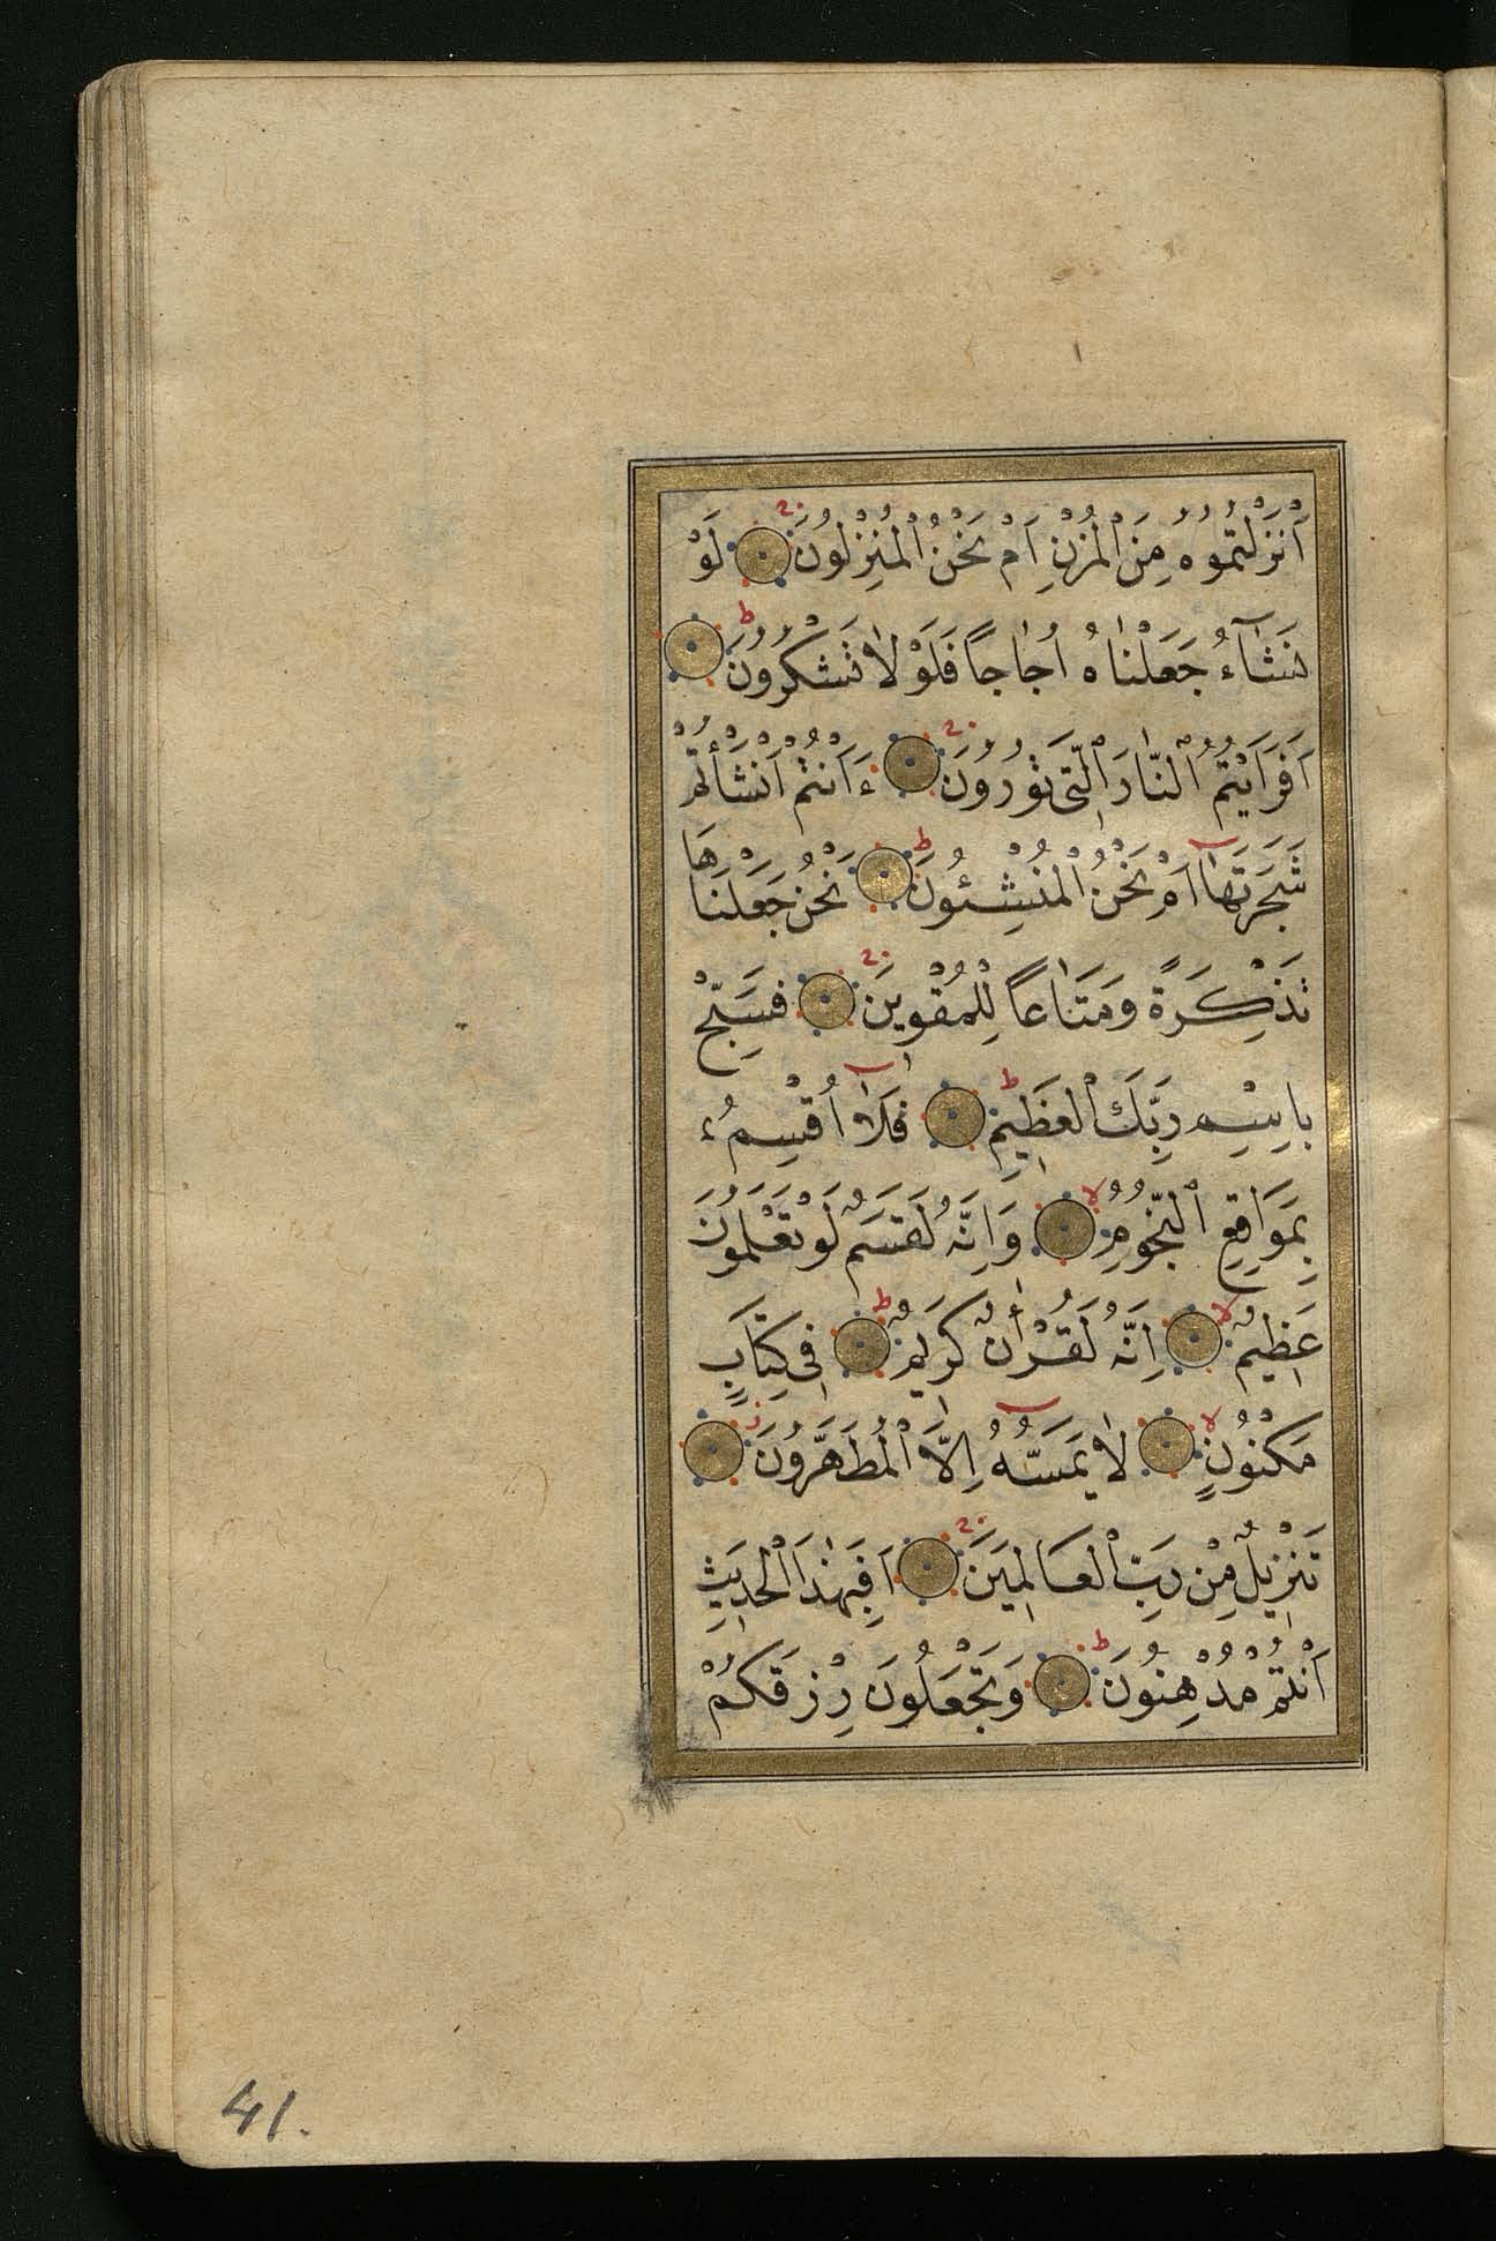 اَنْزَلْتُمُوهُ مِنَ الْمُزْنِ اَمْ نَحْنُ الْمُنْزِلُونَ لَوْ
نَشَآءُ جَعَلْنَاهُ اُجَاجاً فَلَوْلَا تَشْكُرُونَ
اَفَرَاَيْتُمُ النَّارَ الَّتِى تُورُونَ ءَاَنْتُمْ اَنْشَأْتُمْ
شَجَرَتَهَا اَمْ نَحْنُ الْمُنْشِئُونَ نَحْنُ جَعَلْنَاهَا
تَذْكِرَةً وَمَتَاعاً لِلْمُقْوِينَ فَسَبِّحْ
بِاسْمِ رَبِّكَ الْعَظِيمِ فَلَا اُقْسِمُ
بِمَوَاقِعِ النُّجُومِ وَاِنَّهُ لَقَسَمٌ لَوْ تَعْلَمُونَ
عَظِيمٌ اِنَّهُ لَقُرْاٰنٌ كَرِيمٌ فِى كِتَابٍ
مَكْنُونٍ لَا يَمَسُّهُ اِلَّا الْمُطَهَّرُونَ
تَنْزِيلٌ مِنْ رَبِّ الْعَالَمِينَ اَفَبِهٰذَا الْحَدِيثِ
اَنْتُمْ مُدْهِنُونَ وَتَجْعَلُونَ رِزْقَكُمْ
41.